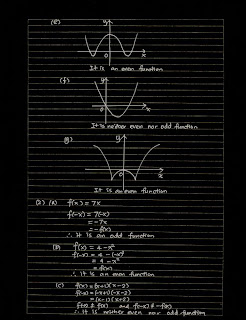 (e)
y
0
x
It is an even function
(f)
y
0
x
It is neither even nor odd function
(g)
y
0
x
It is an even function
(2) (A) f(x) = 7x
f(-x) = 7(-x)
= -7x
= -f(x)
∴ It is an odd function
(B) f(x) = 4 - x²
f(-x) = 4 - (-x)²
= 4 - x²
= f(x)
∴ it is an even function
(C) f(x) = (x+1)(x-2)
f(-x) = (-x+1)(-x-2)
= (x-1)(x+2)
f(x) ≠ f(x) and f(-x) ≠ -f(x)
∴ It is neither even nor odd function